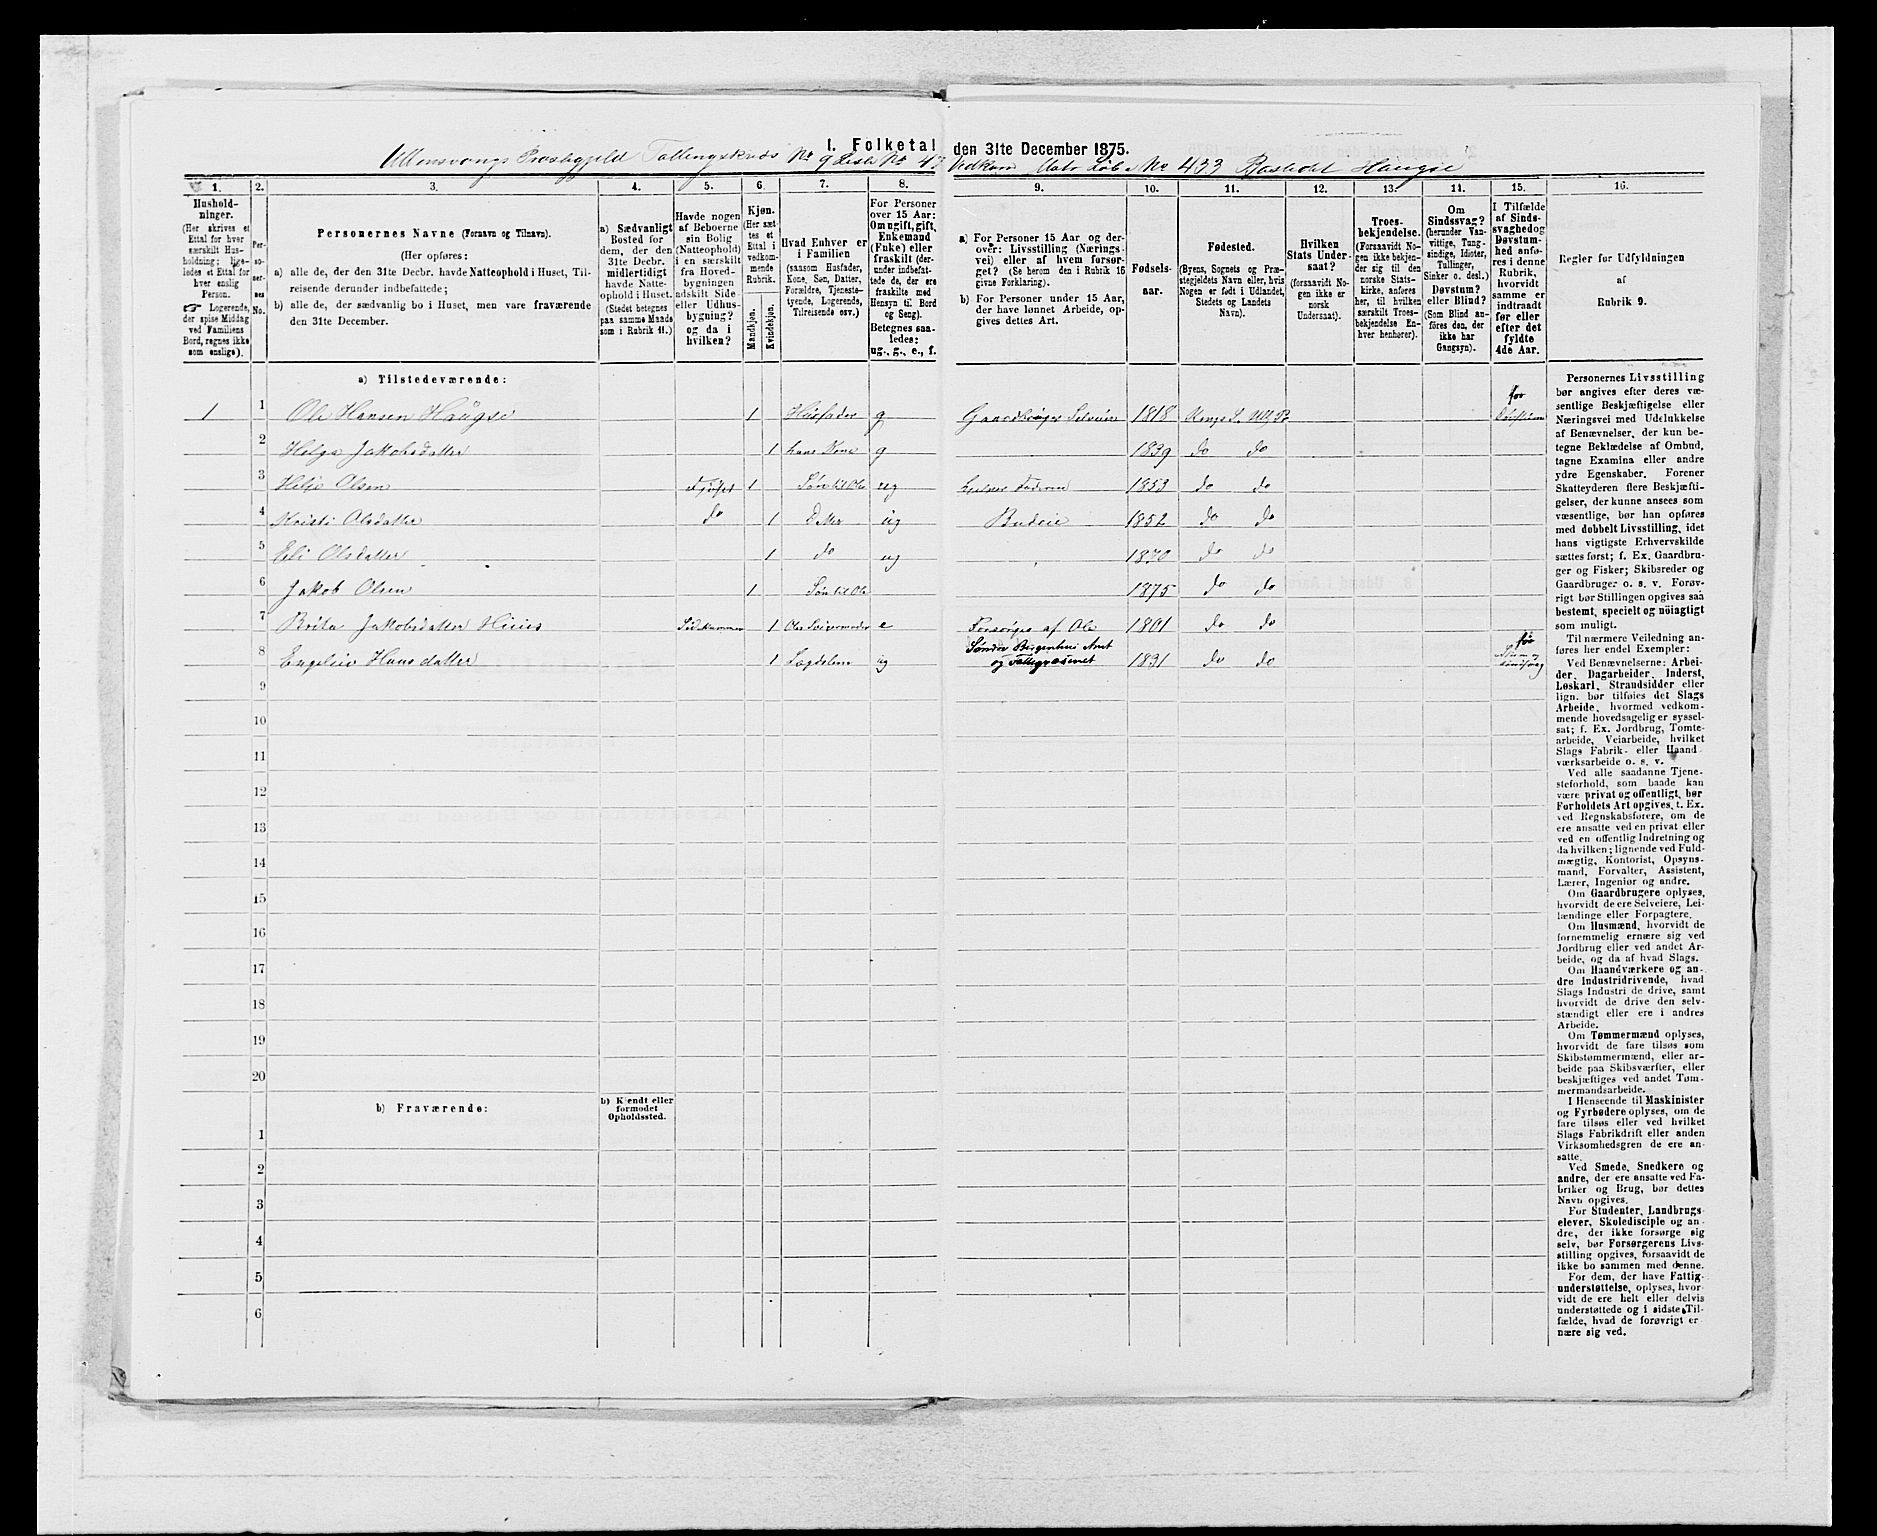 I. Folketal den 31te December 1875.
Ullensvangs Præstegjeld Tællingskreds No 9 Liste No 4 Vedkom Matr Løbe No 433 Bosted Haugse
1. 2. 3. 4. 5. 6. 7. 8. 9. 10. 11. 12. 13. 14. 15. 16.
Hushold-
ninger.
(Her skrives et
Ettal for hver
særskilt Hus-
holdning; lige-
ledes et Ettal for
hver enslig
Person.
☞ Logerende,
der spise Middag
ved Familiens
Bord, regnes ikke
som enslige).
Per-
so-
ner-
nes
No.
Personernes Navne (Fornavn og Tilnavn).
(Her opføres:
a) alle de, der den 31te Decbr. havde Natteophold i Huset, Til-
reisende derunder indbefattede;
b) alle de, der sædvanlig bo i Huset, men vare fraværende
den 31te December.
a) Sædvanligt
Bosted for
dem, der den
31te Decbr.
midlertidigt
havde Natte-
ophold i Huset.
(Stedet betegnes
paa samme Maade
som i Rubrik 11.)
Havde nogen
af Beboerne
sin Bolig
(Natteophold)
i en særskilt
fra Hoved-
bygningen
adskilt Side-
eller Udhus-
bygning?
og da i
hvilken?
Kjøn.
(Her sæt-
tes et
Ettal i
vedkom-
mende
Rubrik.
Mandkjøn.
Kvindekjøn.
Hvad Enhver er
i Familien
(saasom Husfader,
Kone, Søn, Datter,
Forældre, Tjeneste-
tyende, Logerende,
Tilreisende osv.)
For Personer
over 15 Aar:
Om ugift, gift,
Enkemand
(Enke) eller
fraskilt (der-
under indbefat-
tede de, der ere
fraskilte med
Hensyn til Bord
og Seng).
Betegnes saa-
ledes:
ug., g., e., f.
a) For Personer 15 Aar og der-
over: Livsstilling (Nærings-
vei) eller af hvem forsør-
get? (Se herom den i Rubrik 16
givne Forklaring).
b) For Personer under 15 Aar,
der have lønnet Arbeide, op-
gives dettes Art.
Fødsels-
aar.
Fødested.
(Byens, Sognets og Præ-
stegjeldets Navn eller, hvis
Nogen er født i Udlandet,
Stedets og Landets
Navn).
Hvilken
Stats Under-
saat?
(forsaavidt No-
gen ikke er
norsk
Undersaat).
Troes-
bekjendelse.
(Forsaavidt No-
gen ikke bekjen-
der sig til den
norske Stats-
kirke, anføres
her, til hvilken
særskilt Troes-
bekjendelse En-
hver henhører).
Om
Sindssvag?
(herunder Van-
vittige, Tung-
sindige, Idioter,
Tullinger,
Sinker o. desl.)
Døvstum?
eller Blind?
(Som Blind an-
føres den, der
ikke har
Gangsyn).
I Tilfælde
af Sinds-
svaghed og
Døvstum-
hed anfø-
res i denne
Rubrik,
hvorvidt
samme er
indtraadt
før eller
efter det
fyldte
4de Aar.
Regler for Udfyldningen
af
Rubrik 9.
a) Tilstedeværende:
1 1 Ole Hansen Haugse 1 Husfader g Gaardbruger Selveier 1818 Kongs S. Ull. Pr før
2 Helga Jakobsdatter 1 hans Kone g 1839 do do
3 Helje Olsen 1 Søn til Ole ug hjelper Faderen 1853 do do
4 Kristi Olsdatter do 1 Datter ug Budeie 1852 do do
5 Eli Olsdatter 1 do ug 1870 do do
6 Jakob Olsen 1 Søn til Ole 1875 do do
7 Brita Jakobsdatter 1 Oles Svigermoder e Forsørges af Ole 1801 do do
8 Engelev Hansdatter 1 Lægdslem ug Søndre Bergenhus Amt og Fattigvæsenet 1831 do do før
9
10
11
12
13
14
15
16
17
18
19
20
b) Fraværende:
b) Kjendt eller
formodet
Opholdssted.
1
2
3
4
5
6
Personernes Livsstilling
bør angives efter deres væ-
sentlige Beskjæftigelse eller
Næringsvei med Udelukkelse
af Benævnelser, der kun be-
tegne Beklædelse af Ombud,
tagne Examina eller andre
ydre Egenskaber. Forener
Skatteyderen flere Beskjæfti-
gelser, der kunne ansees som
væsentlige, bør han opføres
med dobbelt Livsstilling, idet
hans vigtigste Erhvervskilde
sættes først; f. Ex. Gaardbru-
ger og Fisker; Skibsreder og
Gaardbruger o. s. v. Forøv-
rigt bør Stillingen opgives saa
bestemt, specielt og nöiagtigt
som muligt.
Til nærmere Veiledning an-
føres her endel Exempler:
Ved Benævnelserne: Arbei-
der, Dagarbeider, Inderst,
Løskarl, Strandsidder eller
lign. bør tilføies det Slags
Arbeide, hvormed vedkom-
mende hovedsagelig er syssel-
sat; f. Ex. Jordbrug, Tomte-
arbeide, Veiarbeide, hvilket
Slags Fabrik- eller Haand-
værksarbeide o. s. v.
Ved alle saadanne Tjene-
steforhold, som baade kan
være privat og offentligt, bør
Forholdets Art opgives, t. Ex.
ved Regnskabsførere, om de
ere ansatte ved en privat eller
ved en offentlig Indretning og
da hvilken; lignende ved Fuld-
mægtig, Kontorist, Opsyns-
mand, Forvalter, Assistent,
Lærer, Ingeniør og andre.
Om Gaardbrugere oplyses,
hvorvidt de ere Selveiere, Lei-
lændinge eller Forpagtere.
Om Husmænd, hvorvidt de
fornemmelig ernære sig ved
Jordbrug eller ved andet Ar-
beide, og da af hvad Slags.
Om Haandværkere og an-
dre Industridrivende, hvad
Slags Industri de drive, samt
hvorvidt de drive den selv-
stændigt eller ere i andres
Arbeide.
Om Tømmermænd oplyses,
hvorvidt de fare tilsøs som
Skibstømmermænd, eller ar-
beide paa Skibsværfter, eller
beskjæftiges ved andet Tøm-
mermandsarbeide.
I Henseende til Maskinister
og Fyrbødere oplyses, om de
fare tilsøs eller ved hvilket
Slags Fabrikdrift eller anden
Virksomhedsgren de ere an-
satte.
Ved Smede, Snedkere og
andre, der ere ansatte ved Fa-
briker og Brug, bør dettes
Navn opgives.
For Studenter, Landbrugs-
elever, Skoledisciple og an-
dre, der ikke forsørge sig
selv, bør Forsørgerens Livs-
stilling opgives, forsaavidt de
ikke bo sammen med denne.
For dem, der have Fattig-
understøttelse, oplyses, hvor-
vidt de ere helt eller delvis
understøttede og i sidste Til-
fælde, hvad de forøvrigt er-
nære sig ved.